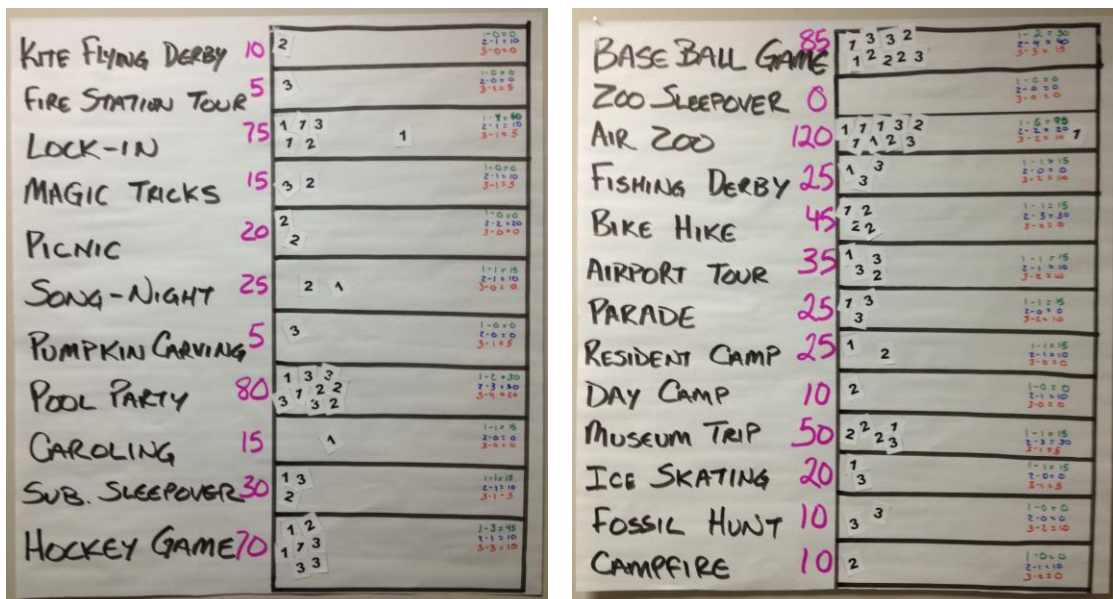 KITE FLYING DERBY 10 2
1-0=0
2-1=10
3-0=0
FIRE STATION TOUR 5 3
1-0=0
2-0=0
3-1=5
LOCK-IN 75 1 1 3 1
1 2
1-4=60
2-1=10
3-1=5
MAGIC TRICKS 15 3 2
1-0=0
2-1=10
3-1=5
PICNIC 20 2
2
1-0=0
2-2=20
3-0=0
SONG-NIGHT 25 2 1
1-1=15
2-1=10
3-0=0
PUMPKIN CARVING 5 3
1-0=0
2-0=0
3-1=5
POOL PARTY 80 1 3 3
3 1 2 2
3 2
1-2=30
2-3=30
3-4=20
CAROLING 15 1
1-1=15
2-0=0
3-0=0
SUB. SLEEPOVER 30 1 3
2
1-1=15
2-1=10
3-1-5
HOCKEY GAME 70 1 2
1 1 3
3 3
1-3=45
2-1=10
3-3=10
BASE BALL GAME 85 1 3 3 2
1 2 2 2 3
1-2=30
2-4=40
3-3=15
ZOO SLEEPOVER 0
1-0=0
2-0=0
3-0=0
AIR ZOO 120 1 1 1 3 2
1 1 2 3 1
1-6=90
2-2=20
3-2=10
FISHING DERBY 25 1 3
3
1-1=15
2-0=0
3-2=10
BIKE HIKE 45 1 2
2 2
1-1=15
2-3=30
3-0=0
AIRPORT TOUR 35 1 3
3 2
1-1=15
2-1=10
3-2=10
PARADE 25 1 3
3
1-1=15
2-0=0
3-2=10
RESIDENT CAMP 25 1 2
1-1=15
2-1=10
3-0=0
DAY CAMP 10 2
1-0=0
2-1=10
3-0=0
MUSEUM TRIP 50 2 2 2 1
3
1-1=15
2-3=30
3-1=5
ICE SKATING 20 1
3
1-1=15
2-0=0
3-1=5
FOSSIL HUNT 10 3 3
1-0=0
2-0=0
3-2=10
CAMPFIRE 10 2
1-0=0
2-1=10
3-0=0